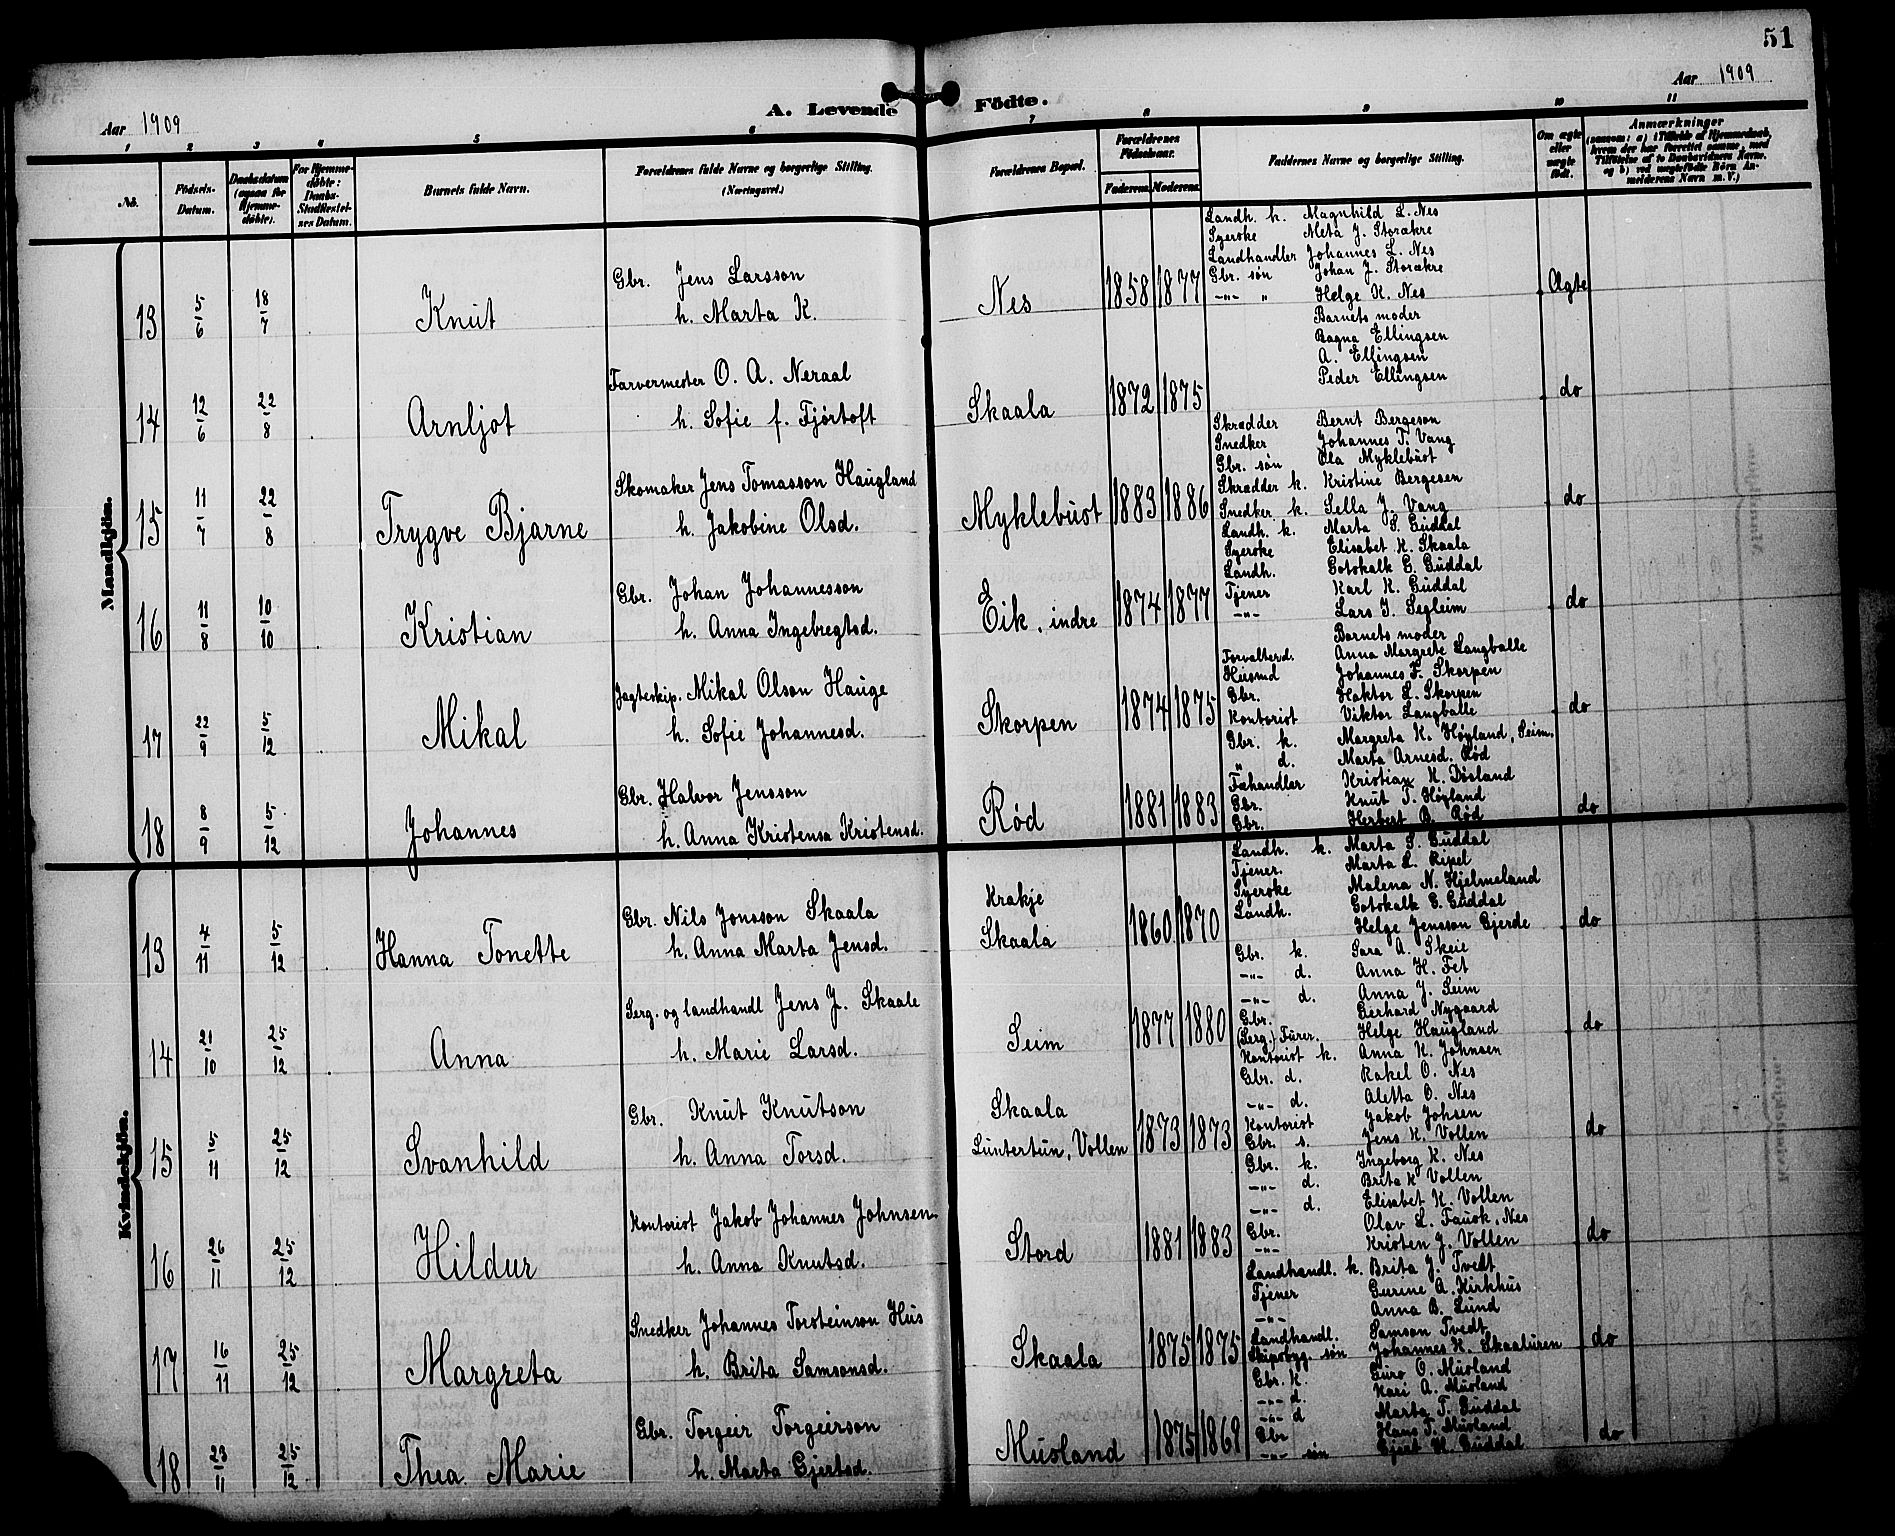 51
Aar 1909
Aar 1909
A. Levende Födte.
1 2 3 4 5 6 7 8 9 10 11
No.
Födsels-Datum.
Daabsdatum (ogsaa for Hjemmedöbte).
For Hjemmedöbte: Daabs-Stadfæstelses Datum.
Barnets fulde Navn.
Forældrenes fulde Navne og borgerlige Stilling. (Næringsvei.)
Forældrenes Bopæl.
Forældrenes Födselsaar.
Faderens. Moderens.
Faddernes Navne og borgerlige Stilling.
Om ægte eller uægte födt.
Anmærkninger
Mandkjön.
13 5/6 18/7 Knut
Gbr. Jens Larsson
h. Marta K.
Nes 1858 1877 Ægte
Landh. k. Magnhild L. Nes
Syerske Meta J. Storækre
Landhandler Johannes L. Nes
Gbr. søn Johan J. Storækre
-"- " Helge K. Nes
14 12/6 22/8 Arnljot
Farvermester O. A. Neraal
h. Sofie f. Fjørtoft
Skaala 1872 1875 do
Barnets moder
Ragna Ellingsen
A. Ellingsen
Peder Ellingsen
15 11/7 22/8 Trygve Bjarne
Skomaker Jens Tomasson Haugland
h. Jakobine Olsd.
Myklebust 1883 1886 do
Skrædder Bernt Bergeson
Snedker Johannes T. Vang
Gbr. søn Ola Myklebust
Skrædder k. Kristine Bergesen
Snedker k. Sella J. Vang
16 11/8 10/10 Kristian
Gbr. Johan Johannesson
h. Anna Ingebregtsd.
Eik, indre 1874 1877 do
Landh. k. Marta S. Guddal
Syerske Elisabet K. Skaala
Landh. Gotskalk G. Guddal
Tjener Karl K. Guddal
-"- Lars I. Segleim
17 22/9 5/12 Mikal
Jagteskip. Mikal Olson Hauge
h. Sofie Johannesd.
Skorpen 1874 1875 do
Barnets moder
Forvalterd. Anna Margrete Langballe
Husmd Johannes F. Skorpen
Gbr. Haktor L. Skorpen
Kontorist Viktor Langballe
18 8/9 5/12 Johannes
Gbr. Halvor Jensson
h. Anna Kristensa Kristensd.
Rød 1881 1883 do
Gbr. k. Margreta K. Høyland, Seim.
" d. Marta Arnesd. Rød
Fæhandler Kristian K. Døsland
Gbr. Knut T. Høyland
Gbr. Herbert B. Rød
Kvindekjön.
13 4/11 5/12 Hanna Tonette
Gbr. Nils Jonsson Skaala
h. Anna Marta Jensd.
Krakje
Skaala 1860 1870 do
Landh. k. Marta S. Guddal
Tjener. Marta L. Ripel
Syerske Malena N. Hjelmeland
Landh. Gotskalk G. Guddal
Helge Jensson Gjerde
14 21/10 25/12 Anna
Serg. og landhandl Jens J. Skaale
h. Marie Larsd.
Seim 1877 1880 do
Gbr. k. Sara A. Skeie
-"- d. Anna H. Fet
-"- d. Anna J. Seim
Gbr. Gerhard Nygaard
(Serg.) Furer. Helge Haugland
15 5/11 25/12 Svanhild
Gbr. Knut Knutson
h. Anna Torsd.
Skaala
Luntertun, Vollen 1873 1873 do
Kontorist k. Anna K. Johnsen
Gbr. d. Rakel O. Nes
-"- d. Aletta O. Nes
Kontorist Jakob Johsen
Gbr. s. Jens K. Vollen
16 26/11 25/12 Hildur
Kontorist Jakob Johannes Johnsen
h. Anna Knutsd.
Stord 1881 1883 do
Gbr. k. Ingeborg K. Nes
-"- d. Brita K Vollen
-"- d. Elisabet K. Vollen
Gbr. Olav L. Fausk, Nes
-"- Kristen J. Vollen
17 16/11 25/12 Margreta
Snedker Johannes Torsteinson Hus
h. Brita Samsonsd.
Skaala 1875 1875 do
Landhandl. k. Brita J. Tvedt
Tjener Gurine A. Kirkhus
-"- Anna B. Lund
Landhandl. Samson Tvedt
Skipsbyg. søn Johannes K. Skaaluren
18 23/11 25/12 Thea Marie
Gbr. Torgeir Torgeirson
h. Marta Gjertsd.
Musland 1875 1869 do
Gbr. K. Guro O. Musland
-"- d. Kari A. Musland
-"- d Marta T. Guddal
Gbr Hans T. Musland
-"- søn Gjert H. Guddal